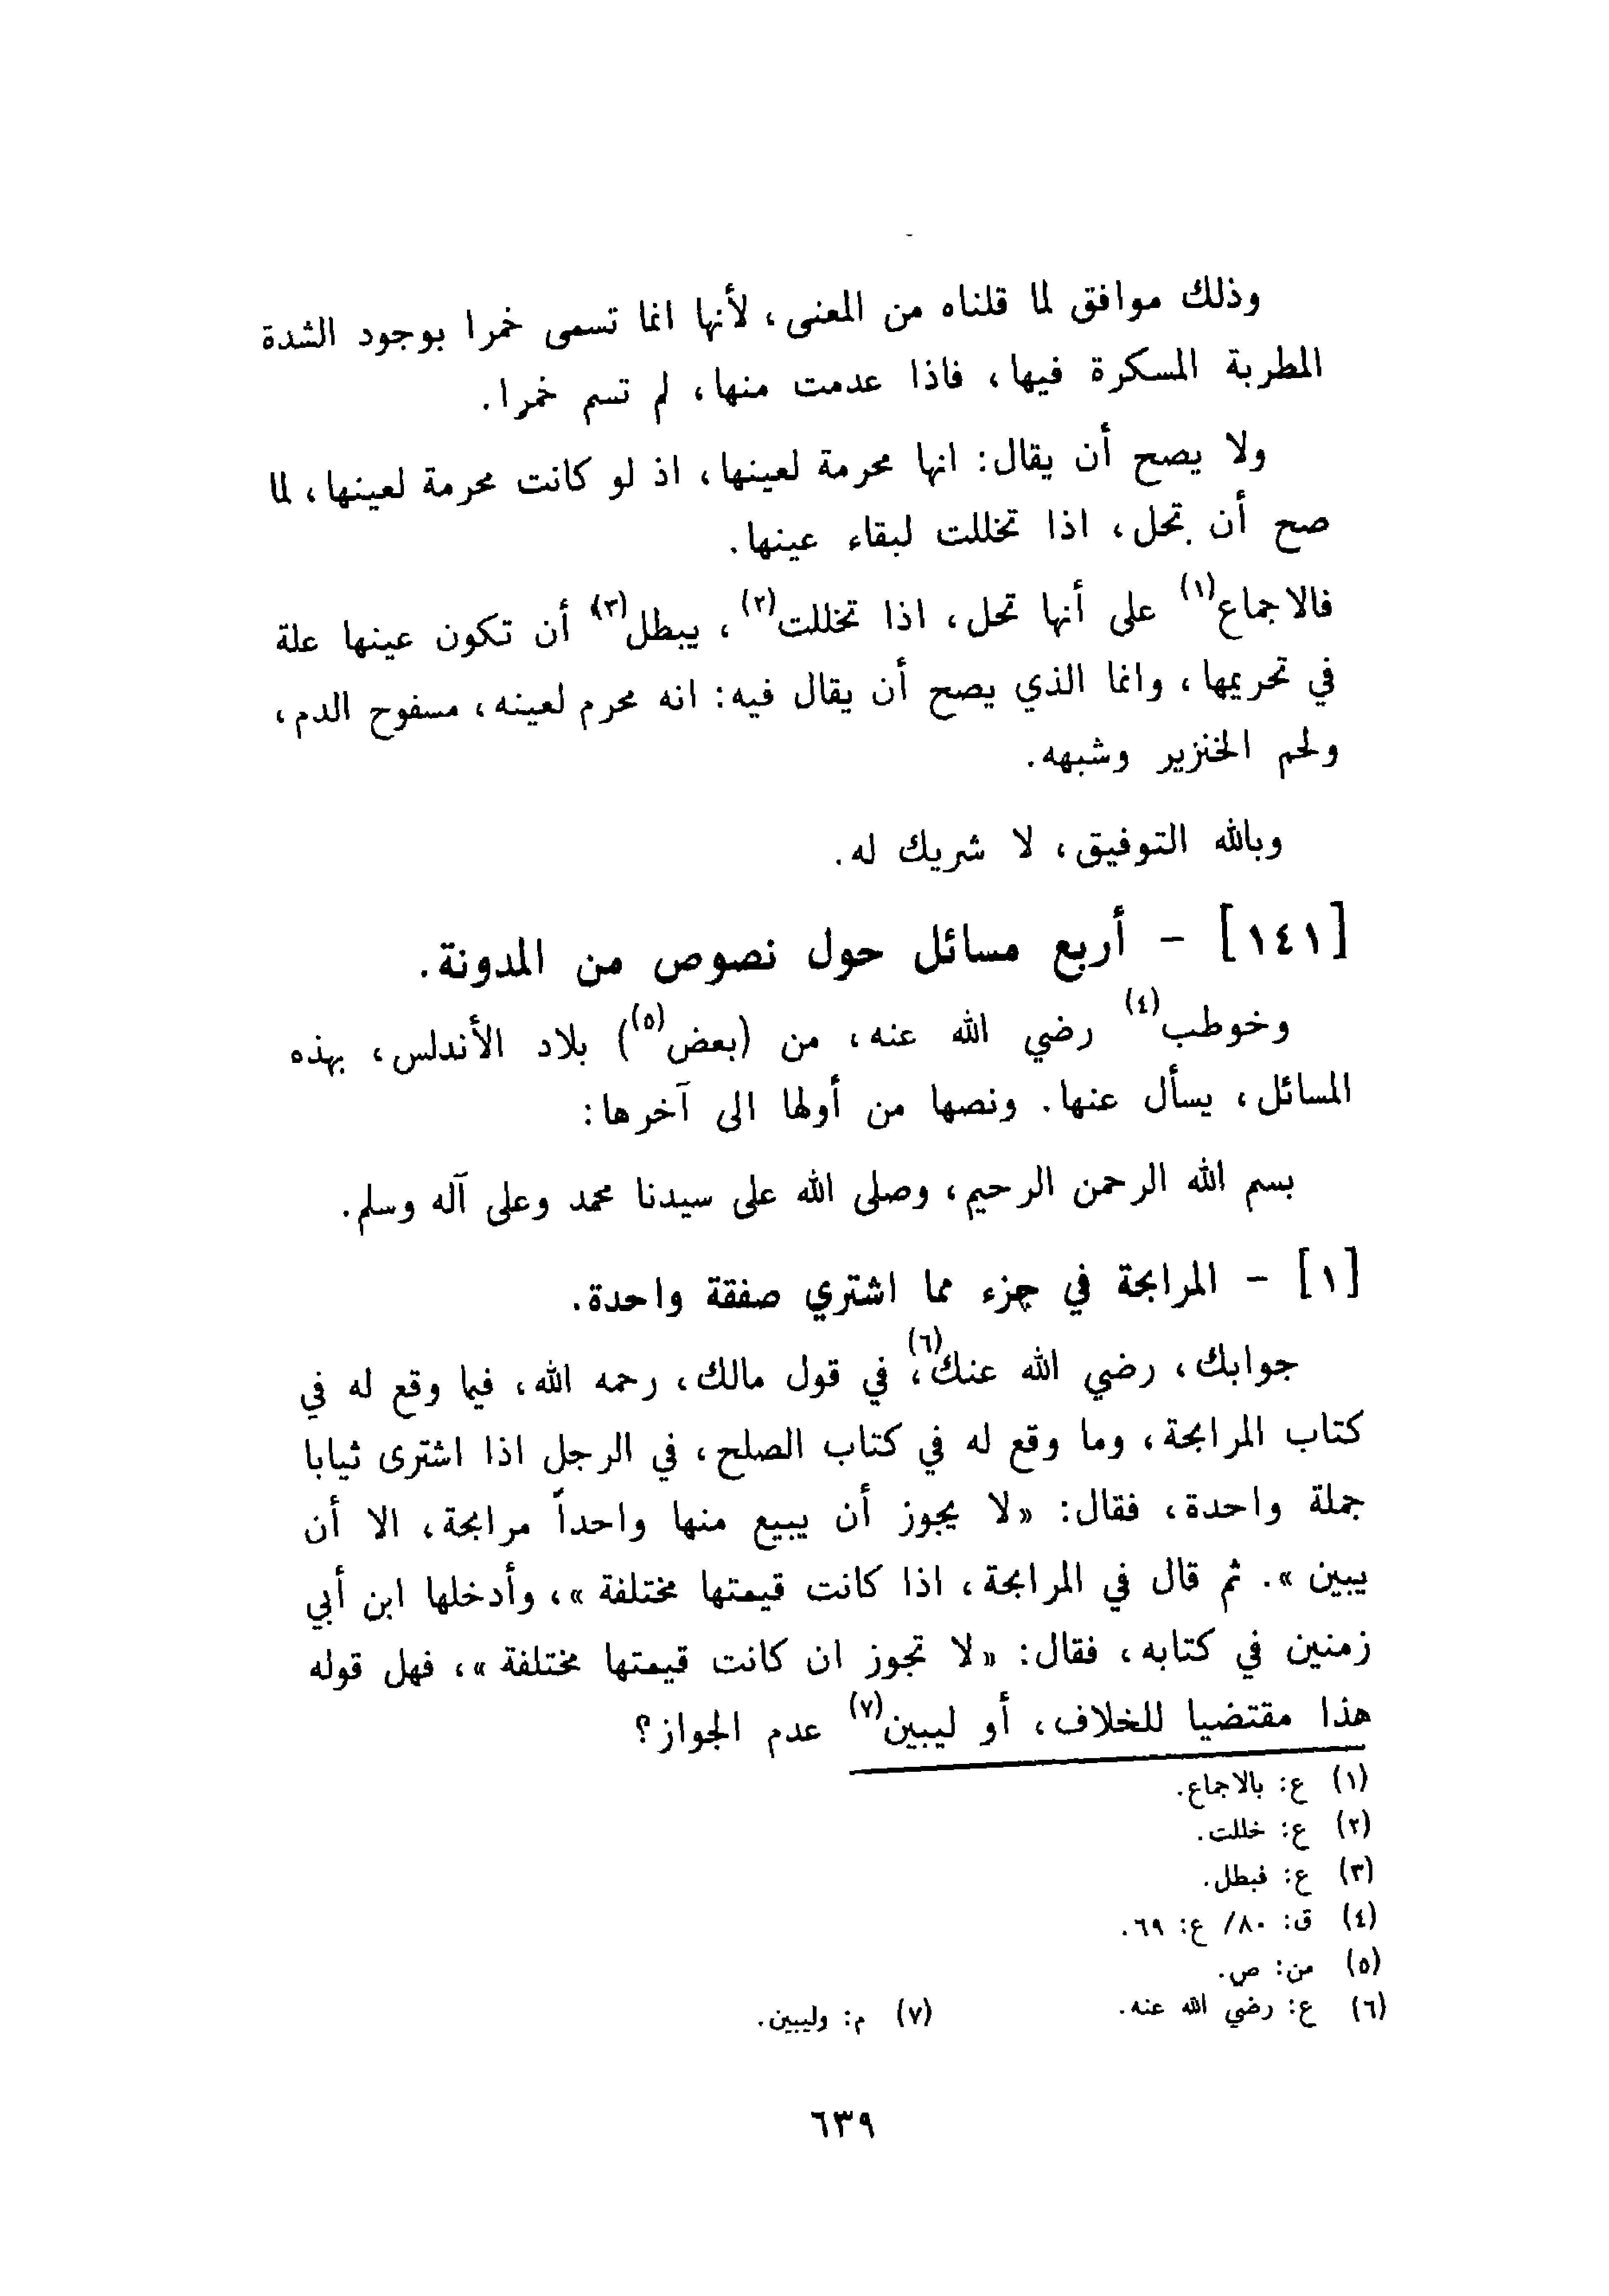 وذلك موافق لما قلناه من المعنى، لأنها انما تسمى خمرا بوجود الشدة
المطربة المسكرة فيها، فاذا عدمت منها، لم تسم خمرا.
ولا يصح أن يقال: انها محرمة لعينها، اذ لو كانت محرمة لعينها، لما
صح أن تحل، اذا تخللت لبقاء عينها.
فالاجماع(١) على أنها تحل، اذا تخللت(٢)، يبطل(٣) أن تكون عينها علة
في تحريمها، وانما الذي يصح أن يقال فيه: انه محرم لعينه، مسفوح الدم،
ولحم الخنزير وشبهه.
وبالله التوفيق، لا شريك له.
[١٤١] - أربع مسائل حول نصوص من المدونة.
وخوطب(٤) رضي الله عنه، من (بعض(٥)) بلاد الأندلس، بهذه
المسائل، يسأل عنها. ونصها من أولها الى آخرها:
بسم الله الرحمن الرحيم، وصلى الله على سيدنا محمد وعلى آله وسلم.
[١] - المرابحة في جزء مما اشتري صفقة واحدة.
جوابك، رضي الله عنك(٦)، في قول مالك، رحمه الله، فيما وقع له في
كتاب المرابحة، وما وقع له في كتاب الصلح، في الرجل اذا اشترى ثيابا
جملة واحدة، فقال: «لا يجوز أن يبيع منها واحداً مرابحة، الا أن
يبين». ثم قال في المرابحة، اذا كانت قيمتها مختلفة»، وأدخلها ابن أبي
زمنين في كتابه، فقال: «لا تجوز ان كانت قيمتها مختلفة»، فهل قوله
هذا مقتضيا للخلاف، أو ليبين(٧) عدم الجواز؟
(١) ع: بالاجماع.
(٢) ع: خللت.
(٣) ع: فبطل.
(٤) ق: ٨٠/ ع: ٦٩.
(٥) من: ص.
(٦) ع: رضي الله عنه. (٧) م: وليبين.
٦٣٩